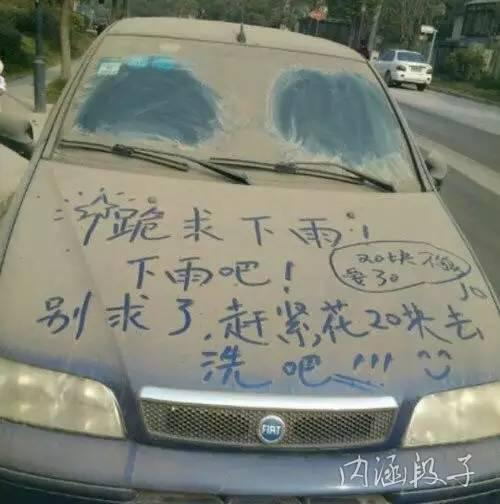 跪求下雨！
下雨吧！
20块不够
要30
别求了，赶紧花20块去
洗吧!!!
FIAT
内涵段子